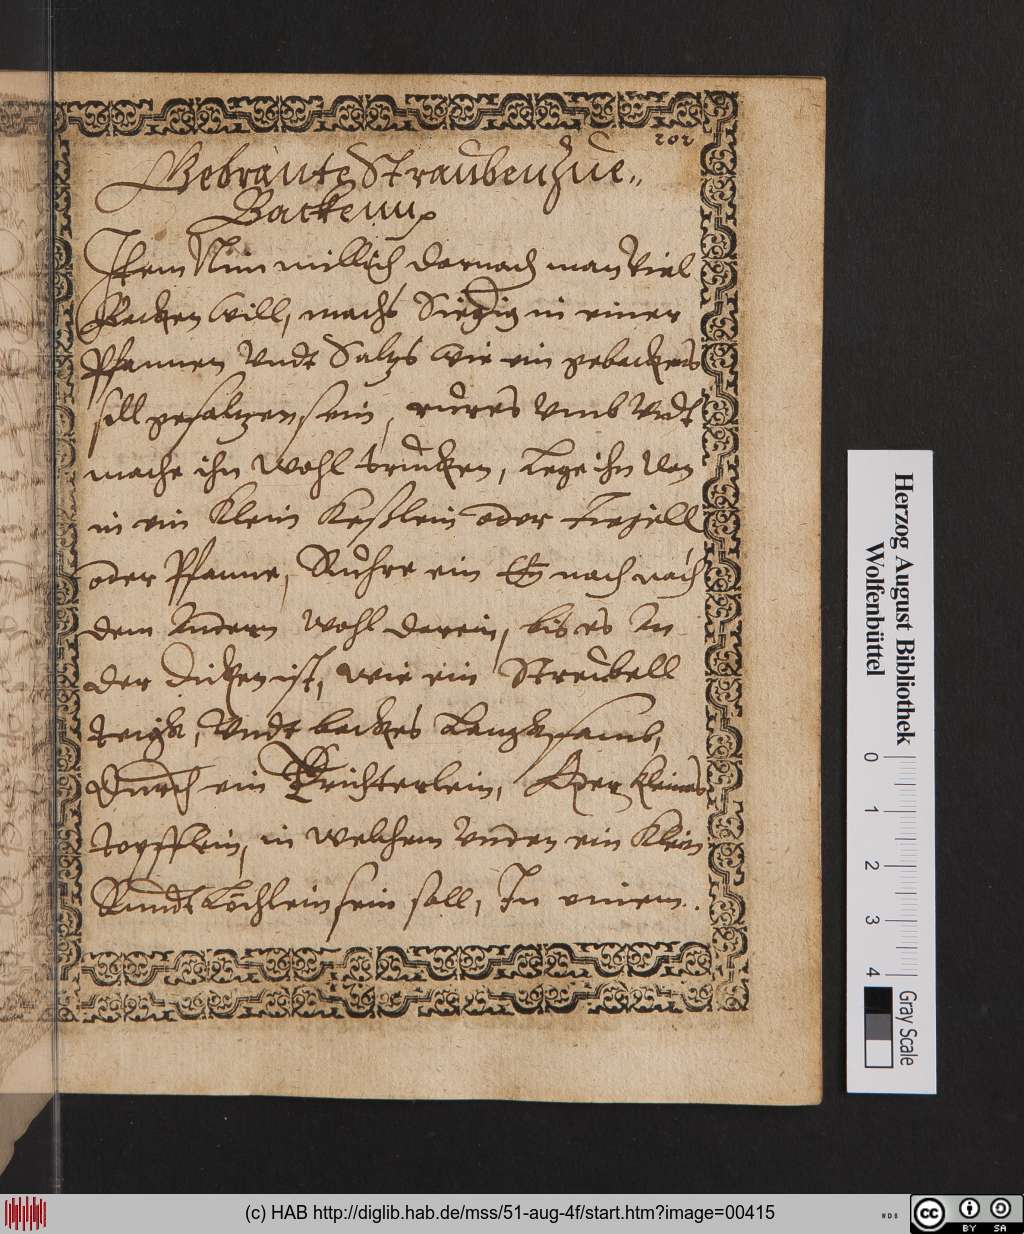 202
Gebraute Strauben Zue„
Backenn
Item Nim millich darnach man Viel
Backen will, machs Siedig in einer
Pfannen Undt Saltzs wie ein gebackens
soll gesaltzen sein, rures Umb Undt
mache ihn wohl trucken, Lege ihn
in ein Klein Keßlein oder Tiegell
oder Pfanne, Ruhre ein Ey nach
dem Andern wohl darein, bis es An
der Dicken ist, wie ein Streubell
teigk, Undt backes Langksamb,
Durch ein Trichterlein, Oder kleines
topfflein, in welchem Unden ein Klein
Rundt Löchlein sein soll, In einem
Herzog August Bibliothek
Wolfenbüttel
0 1 2 3 4
Gray Scale
(c) HAB http://diglib.hab.de/mss/51-aug-4f/start.htm?image=00415
WDB
cc
BY SA